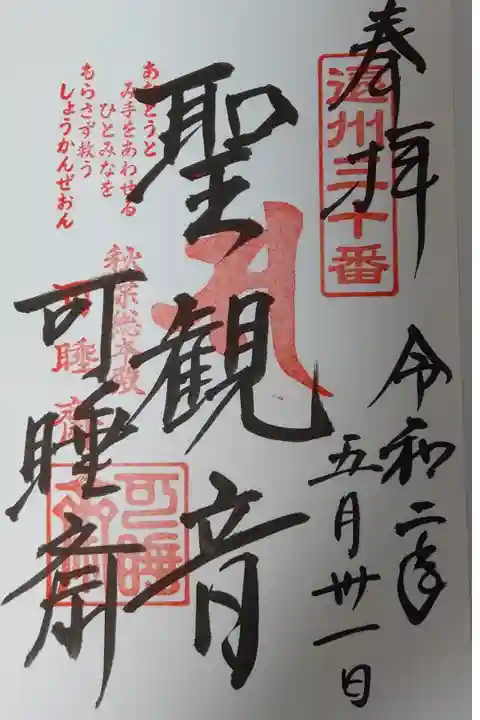 奉拝
遠州三十番
令和二年
五月卅一日
聖観音
あらとうと
み手をあわせる
ひとみなを
もらさず救う
しょうかんぜおん
秋葉総本殿
可睡斎
可睡斎